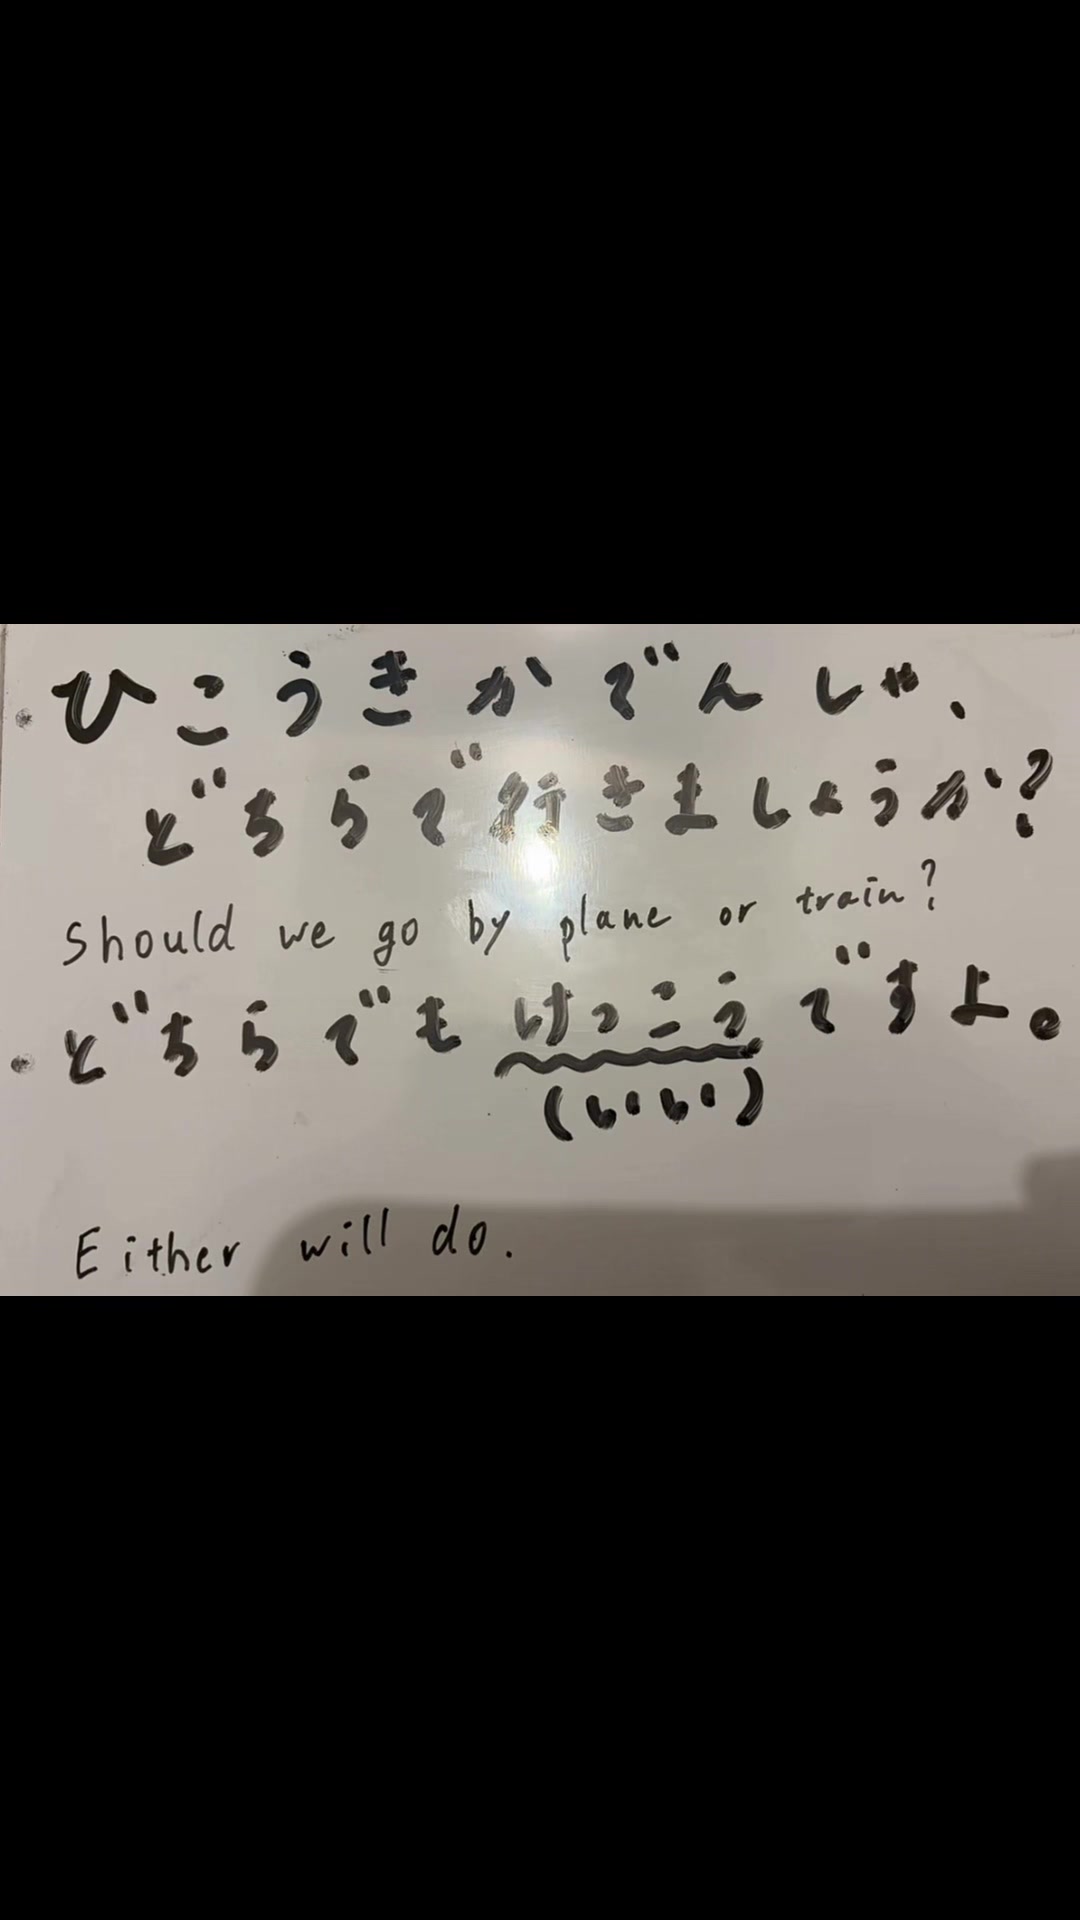 ・ひこうきかでんしゃ、
どちらで行きましょうか?
Should we go by plane or train?
・どちらでもけっこうですよ。
(いい)
Either will do.